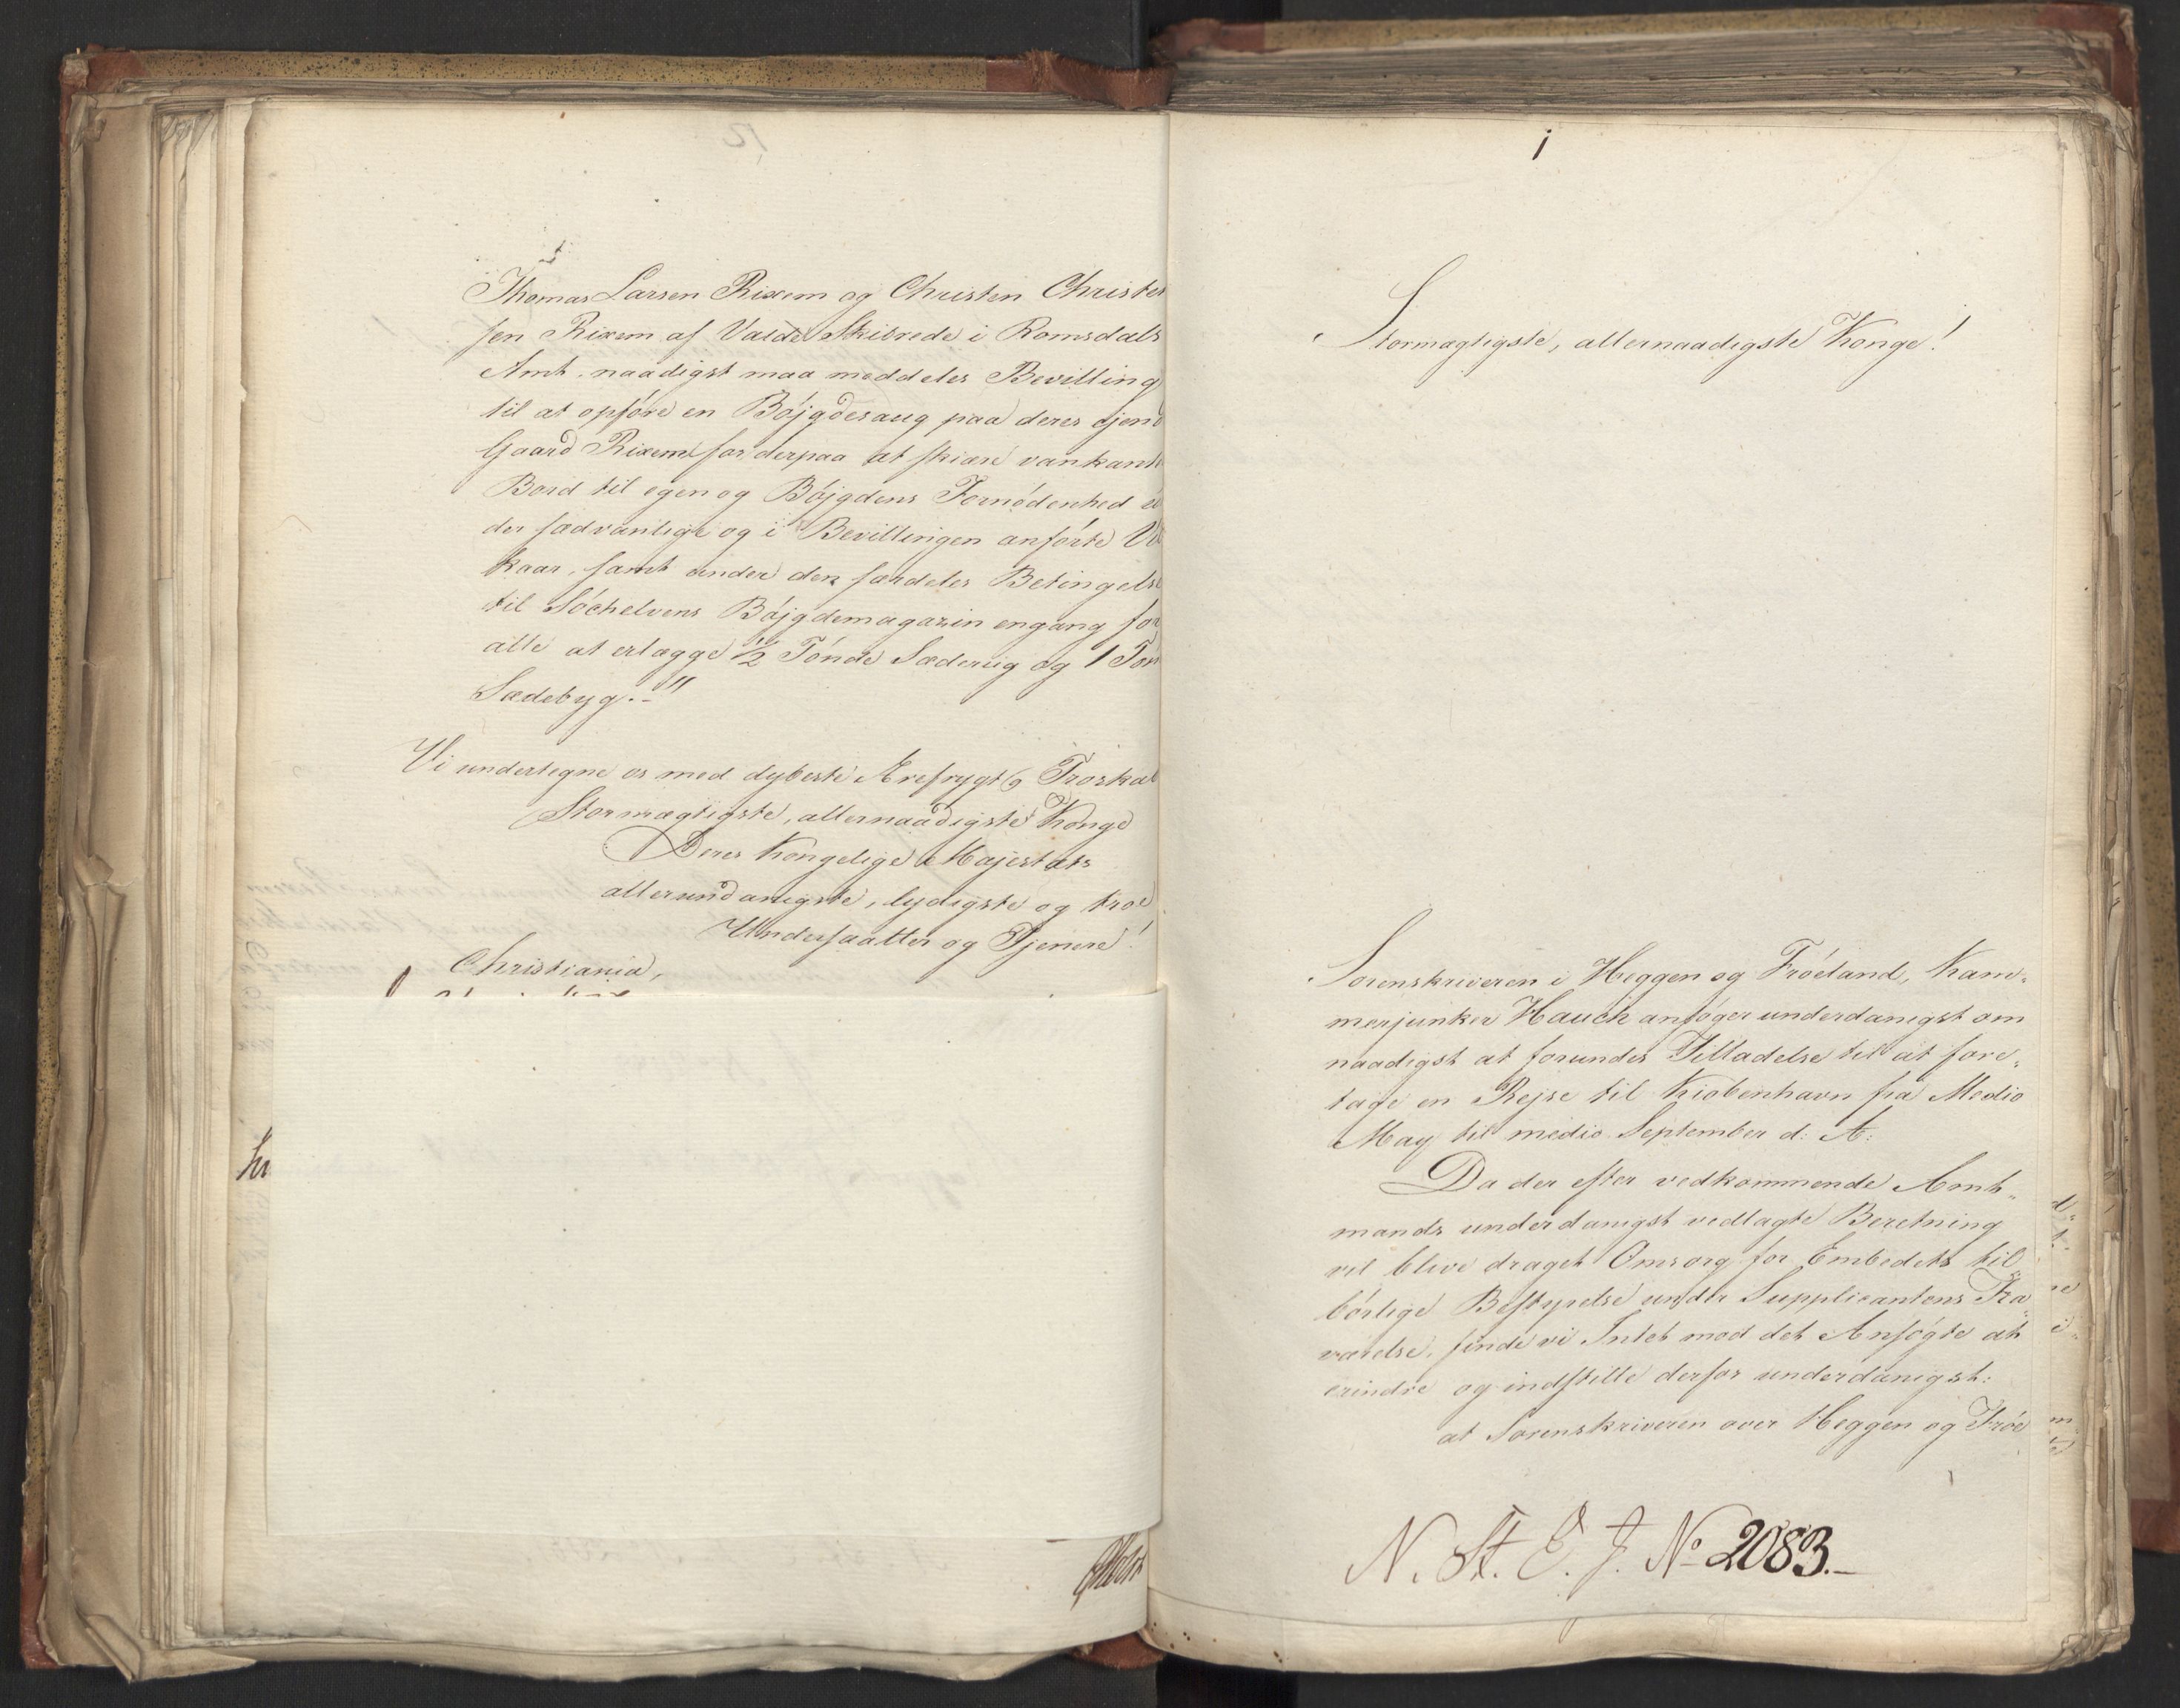 Thomas Larsen Rixem og Christen Christen
sen Rixem af Valde Skibrede i Romsdals
Amt naadigst maa meddeles Bevilling
til at opføre en Bøjgdesaug paa deres ejend
Gaard Rixem for derpaa at skiære vankant
Bord til egen og Bøjgdens Fornødenhed
der sædvanlige og i Bevillingen anførte Vil
kaar, samt under den særdeles Betingelse
til Søchelvens Bøjgdemagazin engang for
alle at erlægge ½ Tønde Sæderug og 1 Tøn
Sædebyg.-"
Vi undertegne os med dybeste Ærefrygt og Troskab
Stormægtigste, allernaadigste Konge
Deres Kongelige Majestæts
allerundanigste, lydigste og troe
Undersaatter og Tjenere!
Christiania,
1
Stormægtigste, allernaadigste Konge!
Sorenskriveren i Heggen og Frøeland, Kam-
merjunker Hauch ansøger underdanigst om
naadigst at forundes Tilladelse til at fore-
tage en Rejse til Kiøbenhavn fra Medio
May til medio September d: A:
Da der efter vedkommende Amt-
mands underdanigst vedlagte Beretning
vil blive draget Omsorg for Embedets til
børlige Bestyrelse under Supplicantens Fra-
værelse, finde vi Intet mod det Ansøgte at
erindre og indstille derfor underdanigst:
at Sorenskriveren over Heggen og Frøe
N. St. E. J. No 2083.-